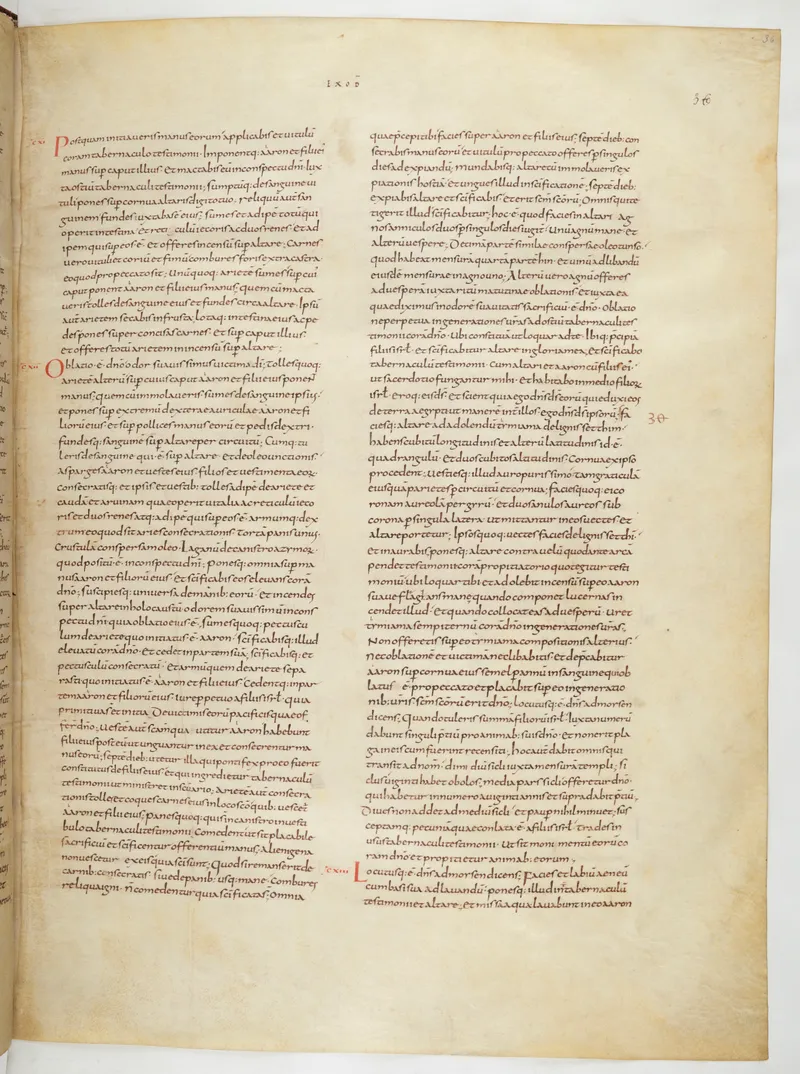 EXOD
36
Postquam initiaueris manus eorum applicabis et uitulū
coram tabernaculo testimonii. Imponentq; aaron et filii ei
manus sup caput illius. Et mactabis eū in conspectu dni iux
ta ostiū tabernaculi testimonii; sumptūq; de sanguine ui
tuli pones sup cornua altaris digito tuo. reliquū aut san
guinem fundes iuxta basē eius. Sumes et adipē totū qui
operit intestina. et reticulū iecoris ac duos renes. Et ad
ipem qui sup eos ē. et offeres incensū sup altare; Carnes
uero uituli et coriū et fimū combures foris extra castra.
eo quod pro peccato sit; Unūquoq; arietē sumes sup cui
caput ponent aaron et filii eius manus. quem cū macta
ueris tolles de sanguine eius et fundes circa altare; Ipsū
aut arietem secabis in frusta. lotaq; intestina eius ac pe
des pones super concisas carnes. Et sup caput illius.
et offeres totū arietem in incensū sup altare;
Oblatio ē dno odor suauissimus uictimae di; Tolles quoq;
arietē alterū sup cuius caput aaron et filii eius ponent
manus. quem cū immolaueris sumes de sanguine ipsius
et pones sup extremū dexterae auriculae aaron et fi
liorū eius. et sup pollices manus eorū et pedis dextri.
fundesq; sanguinē sup altare per circuitū; Cumq; tu
leris de sanguine qui ē sup altare. Et de oleo unctionis.
asparges aaron et uestes eius. filios et uestimenta eoz.
consecratisq; et ipsis et uestib; tolles adipē de ariete et
caudā et aruinam quae operit uitalia ac reticulū ieco
ris et duos renes atq; adipē qui sup eos ē. armumq; dex
trum eo quod sit aries consecrationis. tortā panis unius.
Crustulā conspersam oleo. Laganū de canistro azymoz.
quod positū ē in conspectu dni; Ponesq; omnia sup ma
nus aaron et filiorū eius. et scificabis eos eleuans corā
dno; suscipiesq; uniuersa de manib; eorū. Et incendes
super altare in holocaustū odorem suauissimū in cons
pectu dni quia oblatio eius ē. sumes quoq; pectusculū
lum de ariete quo initiatus ē aaron. Scificabisq; illud
eleuatū corā dno. Et cedet in partem tuā; scificabisq; et
pectusculū consecratū. Et armū quem de ariete sepa
rasti quo initiatus ē aaron et filii eius. Cedentq; in par
tem aaron et filiorū eius. iure perpetuo a filiis isrl. quia
primitiua st et initia. De uictimis eorū pacificis quae of
fer dno; Uestē aut scām qua utitur aaron habebunt
filii eius post eū. ut unguantur in ea et consecrentur ma
nus eorū; Septē dieb; utetur illa qui pontifex pro eo fuerit
constitutus de filiis eius. et qui ingredietur tabernaculū
testimonii ut ministret in sctuario; Arietē aut consecra
tionis tolles et coques carnes eius in loco scō quib; uescet
aaron et filii eius; panes quoq; qui st in canistro in uesti
bulo tabernaculi testimonii. Comedent ut sit placabile
sacrificiū et scificentur offerentiū manus. Alienigena
non uescetur ex eis quia sci sunt; Quod si remanserit de
carnib; consecratis siue de panib; usq; mane. Combures
reliquias igni. n comedentur quia scificatas; Omnia
quae pcepi tibi facies super aaron et filiis eius; septē dieb; con
secrabis manus eorū et uitulū pro peccato offeres p singulos
dies ad expiandū; mundabisq; altare cū immolaueris ex
piationis hostiā. et ungues illud in scificatione; septē dieb;
expiabis altare et scificabis. et erit scm scorū; Omnis qui te
tigerit illud scificabitur; hoc ē quod facies in altari. Ag
nos anniculos duos p singulos dies iugit. Unū agnū mane. et
alterū uespere; Decimā partē similae conspersae oleo tunso.
quod habeat mensurā quartā partē hin. Et uinū ad libandū
eiusdē mensurae in agno uno; Alterū uero agnū offeres
ad uesperā iuxta ritū matutinae oblationis. et iuxta ea
quae diximus in odorē suauitatis; Sacrificiū ē dno. Oblatio
ne perpetua in generationes uras. ad ostiū tabernaculi tes
timonii corā dno. Ubi constituā ut loquar ad te. Ibiq; pcipiā
filiis isrl. Et scificabitur altare in gloria mea; et scificabo
tabernaculū testimonii. Cum altari et aaron cū filiis ei.
ut sacerdotio fungantur mihi. Et habitabo in medio filioz
isrl. Eroq; eis ds. et scient quia ego dns ds eorū qui eduxi eos
de terra aegypti ut manerē int illos. ego dns ds ipsorū; Fa
ciesq; altare ad adolendū tymiama de lignis setthim.
habens cubitū longitudinis et alterū latitudinis. id ē
quadrangulū. et duos cubitos altitudinis; Cornua ex ipso
procedent; uestiesq; illud auro purissimo. tam graticulā
eius quā parietes p circuitū et cornua; faciesq; ei co
ronam aureolā per gyrū. et duos anulos aureos sub
corona p singula latera. ut mittantur in eos uectes. et
altare portetur; Ipsos quoq; uectes facies de lignis setthim.
et inaurabis; ponesq; altare contra uelū quod ante arca
pendet testimonii corā propitiatorio quo tegitur testi
moniū ubi loquar tibi. et adolebit incensū sup eo aaron
suaue flagrans mane; quando componet lucernas in
cendet illud. et quando collocat eas ad uesperū. Uret
tymiama sempiternū corā dno in generationes uras.
Non offeretis sup eo tymiama compositionis alterius.
Nec oblationē et uictimā nec libabitis. et depcabitur
aaron sup cornua eius semel p annū in sanguine quod ob
latus ē pro peccato et placabit sup eo in generatio
nib; uris. scm scorū erit dno; Locutusq; ē dns ad morsen
dicens. Quando tuleris summā filiorū isrl. iuxta numerū
dabunt singuli ptiū pro animab; suis dno. Et non erit pla
ga in eis cum fuerint recensiti; hoc aut dabit omnis qui
transit ad nom. dimidiū sicli iuxta mensurā templi; si
clus uiginti habet obolos. media pars sicli offeretur dno.
qui habetur in numero a uiginti annis et supra dabit ptiū.
Diues non addet ad mediū sicli. et paup nihil minuet; sus
ceptamq; pecuniā quae conlata ē a filiis isrl. trades in
usus tabernaculi testimonii. Ut sit monimentū eorū co
ram dno. et propitietur animab; eorum.
Locutusq; ē dns ad morsen dicens. Facies et labiū aeneū
cum basi sua ad lauandū. ponesq; illud int tabernaculū
testimonii et altare; et missa aqua lauabunt in eo aaron
30